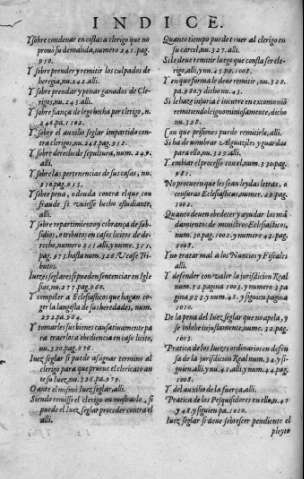 INDICE.
Y sobre condenar en costas a clerigo que no
prouo su demanda, numero 241. pag.
950.
Y sobre prender y remitir los culpados de
heregia, nu. 242. alli.
Y sobre prendar y penar ganados de Cle-
rigos, nu. 243. alli.
Y sobre fiança de lego hecha por clerigo, n.
Y sobre el auxilio seglar impartido con-
tra clerigos, nu. 248. pag. 952.
Y sobre derecho de sepultura, num. 249.
alli.
Y sobre las pertenencias de sus casas, nu.
Y sobre pena, o deuda contra el que con
fraude si vuiesse hecho estudiante,
alli.
Y sobre repartimiento y cobrança de sub-
sidios, o tributos en casos licitos de de-
recho, numero
butos.
Iuezes seglares si pueden sentenciar en Igle-
sias, nu. 277. pag. 960.
Y compeler a Eclesiasticos que hagan co-
ger la langosta de sus heredades, num.
Y tomarles sus bienes causatiuamente pa
ra traerlos a obediencia en caso licito,
Iuez seglar si puede assignar termino al
clerigo para que prueue el clericato an
te su Iuez, nu. 326. pa. 979.
O ante el mismo Iuez seglar, alli.
Siendo remisso el clerigo en mostrarlo, si
puede el Iuez seglar proceder contra el
alli.
Quanto tiempo puede tener al clerigo en
su carcel, nu. 327. alli.
Si le deue remitir luego que consta ser cle-
rigo, alli, y
Y en que forma le deue remitir, nu. 320.
Si le haze injuria e incurre en excomunió
remitiendole ignominiosamente, dicho
nu. 328.
Con que prisiones puede remitirle, alli.
Si ha de nombrar Alguaziles y guardas
para ello, nu. 329. alli.
Y embiar el processo con el, num. 330. pag.
981.
No procuren que les sean leydas letras, o
censuras Eclesiasticas, numer.
1002.
Quanto deuen obedecer y ayudar los má
damientos de ministros Eclesiasticos,
num. 30. pag. 1002. y numero
1008.
Y no tratar mal a los Nuncios y Fiscales
alli.
Y defender con valor la jurisdicion Real
num. 32. pagina 1002. y numero
1010.
De la pena del Iuez seglar que no apela, y
se inhibe injustamente, nume. 32. pag.
1003.
Pratica de los Iuezes ordinarios en defen-
sa de la jurisdicion Real num. 34. y si-
guien. alli, y num. 44. y siguien. pag.
1008.
Y del auxilio de la fuerça, alli.
Pratica de los Pesquisidores en ello, n. 47
y 48. y siguien pa. 1010.
Iuez seglar si deue sobreseer pendiente el